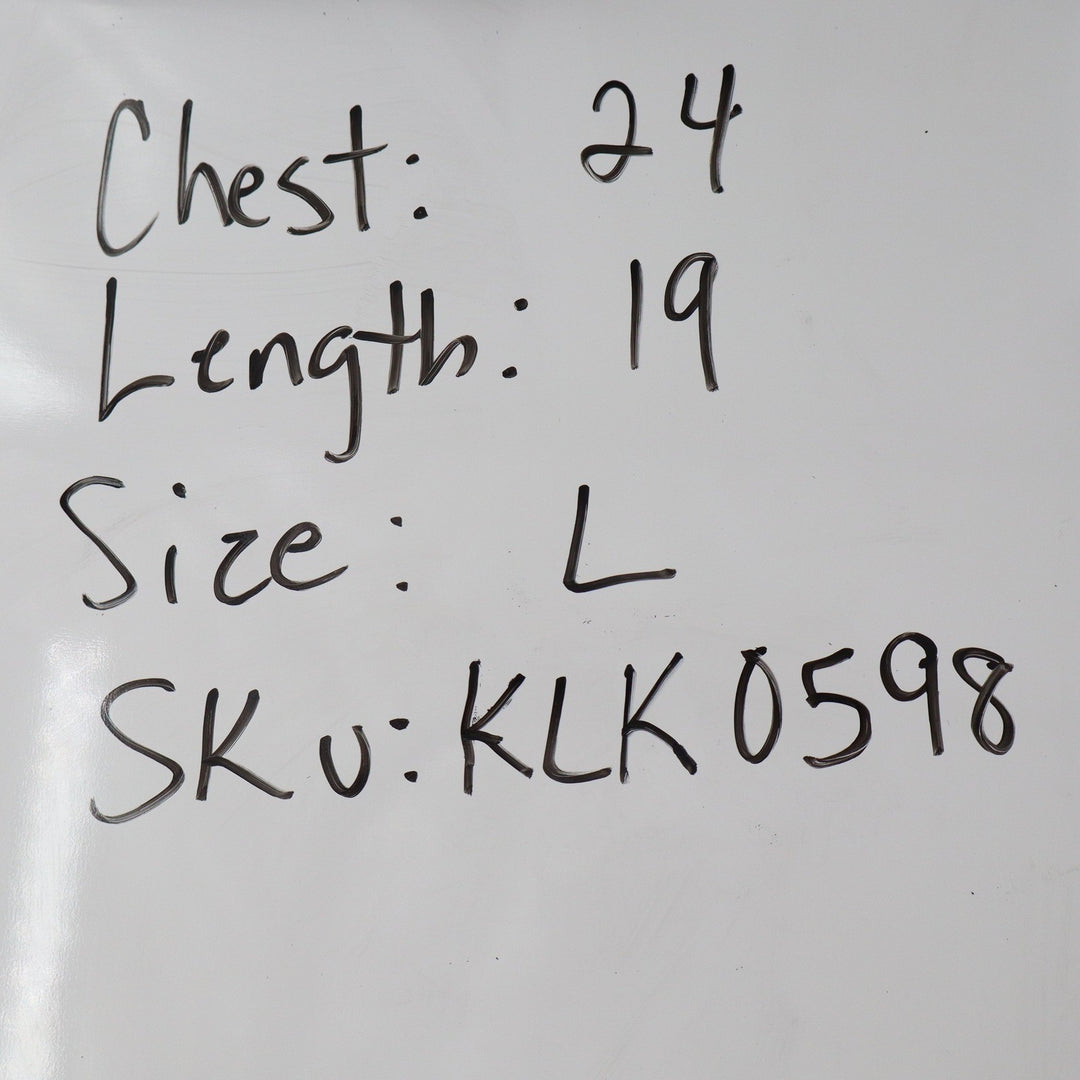 Chest: 24
Length: 19
Size: L
SKU: KLK0598